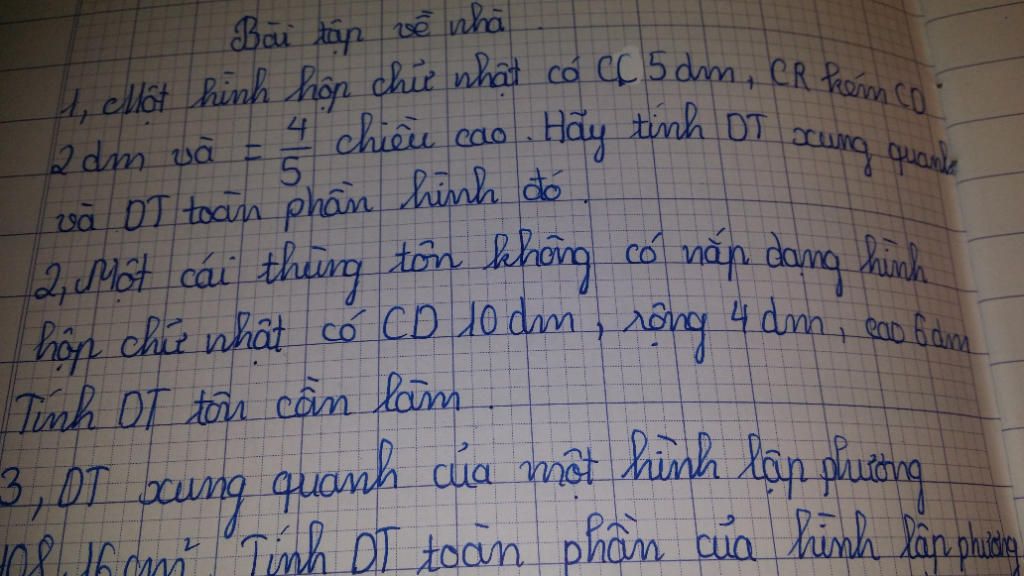 Bài tập về nhà
1, Một hình hộp chữ nhật có CC 5dm, CR kém CD
2dm và = 4/5 chiều cao. Hãy tính DT xung quanh
và DT toàn phần hình đó.
2, Một cái thùng tôn không có nắp dạng hình
hộp chữ nhật có CD 10dm, rộng 4dm, cao 6dm
Tính DT tôn cần làm.
3, DT xung quanh của một hình lập phương
108,16 cm² Tính DT toàn phần của hình lập phương